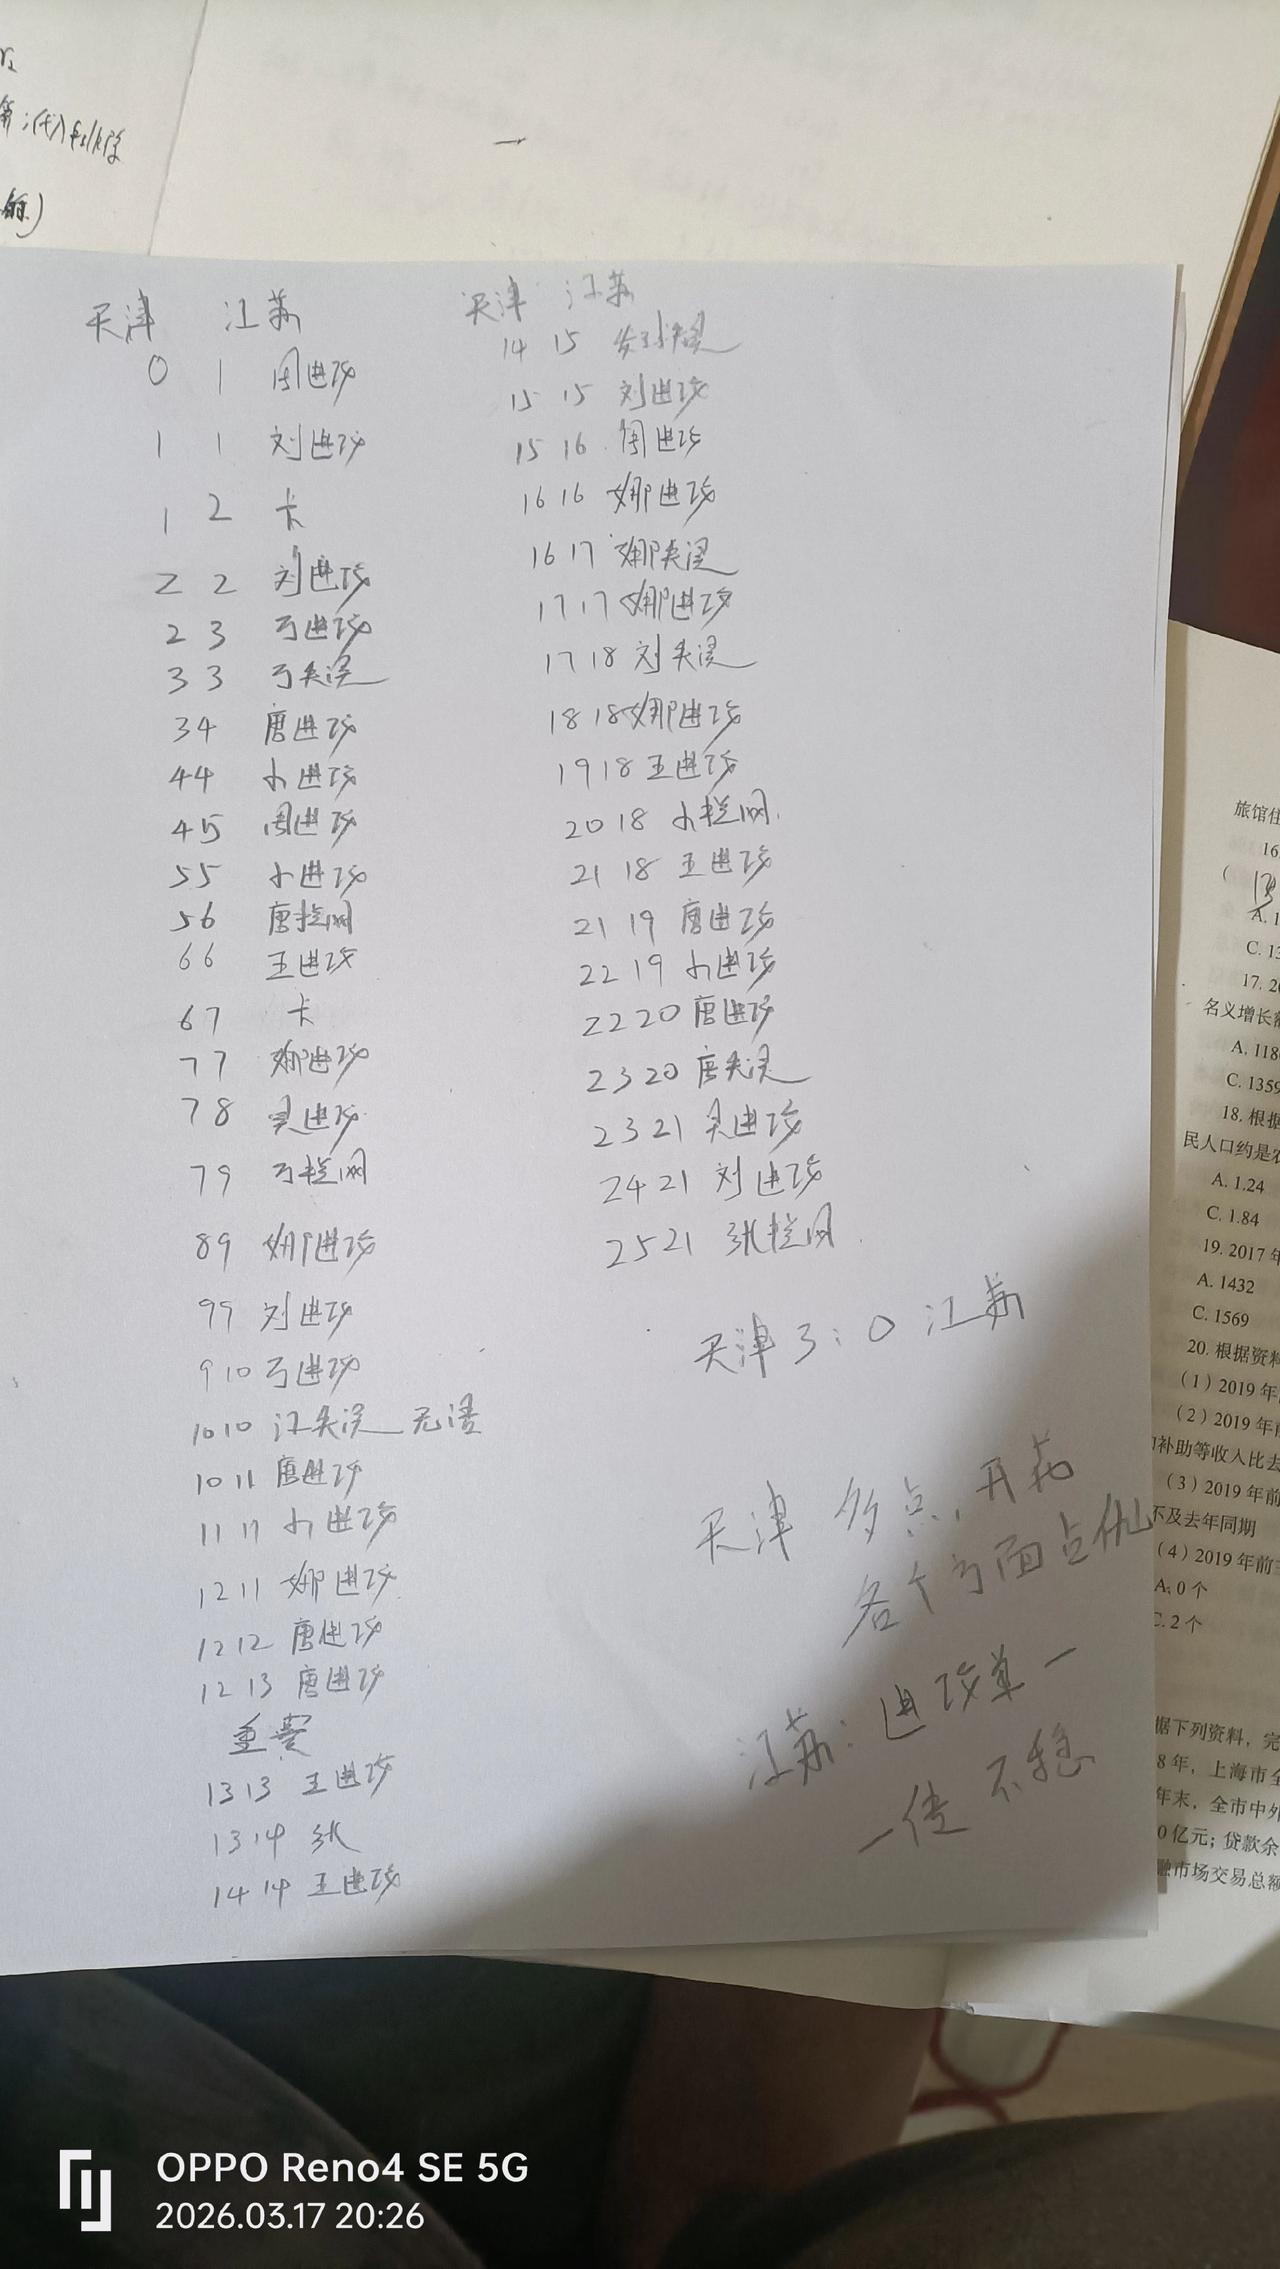 天津 江苏
0 1 周进攻
1 1 刘进攻
1 2 卡
2 2 刘进攻
2 3 弓进攻
3 3 弓失误
3 4 唐进攻
4 4 小进攻
4 5 周进攻
5 5 小进攻
5 6 唐拦网
6 6 王进攻
6 7 卡
7 7 娜进攻
7 8 吴进攻
7 9 弓拦网
8 9 娜进攻
9 9 刘进攻
9 10 弓进攻
10 10 江失误 无语
10 11 唐进攻
11 11 小进攻
12 11 娜进攻
12 12 唐进攻
12 13 唐进攻
重赛
13 13 王进攻
13 14 张
14 14 王进攻
天津 江苏
14 15 发球失误
15 15 刘进攻
15 16 周进攻
16 16 娜进攻
16 17 娜失误
17 17 娜进攻
17 18 刘失误
18 18 娜进攻
19 18 王进攻
20 18 小拦网
21 18 王进攻
21 19 唐进攻
22 19 小进攻
22 20 唐进攻
23 20 唐失误
23 21 吴进攻
24 21 刘进攻
25 21 张拦网
天津 3:0 江苏
天津 多点开花
各个方面占优
江苏:进攻单一
一传不稳
旅馆住
16.
(
A. 1
C. 13
17. 20
名义增长
A. 118
C. 1359
18. 根据
民人口约是农
A. 1.24
C. 1.84
19. 2017年
A. 1432
C. 1569
20. 根据资料
(1)2019年
(2)2019年前
补助等收入比去
(3)2019年前
不及去年同期
(4)2019年前三
A. 0个
C. 2个
据下列资料,完
8年,上海市全
年末,全市中外
0亿元;贷款余
融市场交易总额
OPPO Reno4 SE 5G
2026.03.17 20:26